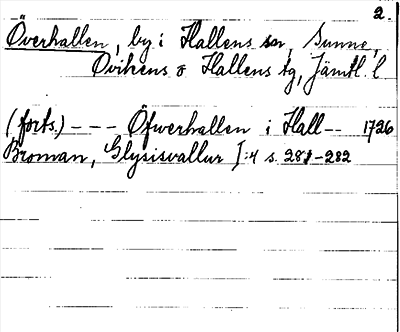 2.
Överhallen, by i Hallens sn, Sunne,
Ovikens o Hallens tg, Jämtl. l
(forts.) --- Öfwerhallen i Hall-- 1726
Broman, Glysisvallur I:4 s. 281-282